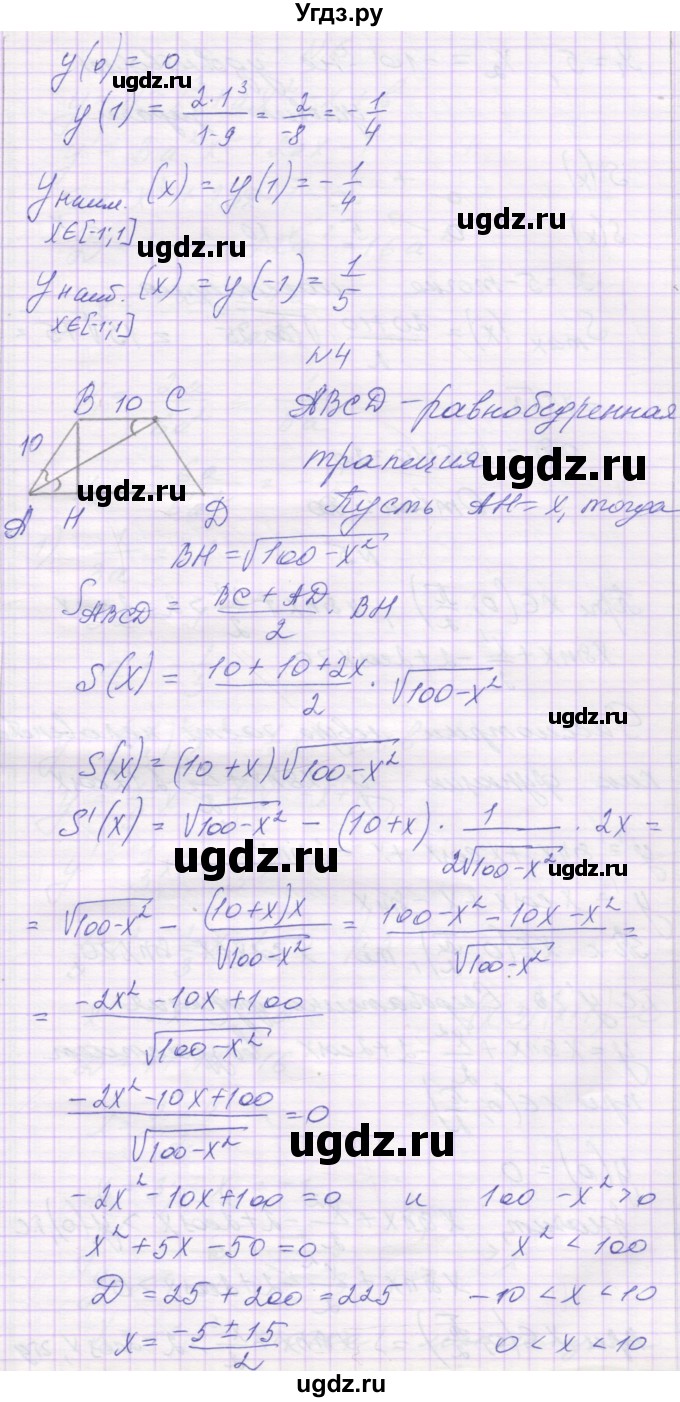 Угдз.ру
y(0) = 0
ugdz.ru
y(1) = 2·1³/1-9 = 2/-8 = -1/4
y наим. (x) = y(1) = -1/4
x∈[-1;1]
ugdz.ru
ugdz.ru
y наиб. (x) = y(-1) = 1/5
x∈[-1;1]
N4
B 10 C
10
A H D
ugdz.ru
ABCD - равнобедренная
трапеция
ugdz.ru
Пусть AH = x, тогда
BH = √100-x²
S ABCD = BC + AD/2 · BH
ugdz.ru
S(x) = 10 + 10 + 2x/2 · √100-x²
ugdz.ru
S(x) = (10+x)√100-x²
S'(x) = √100-x² - (10+x) · 1/2√100-x² · 2x =
ugdz.ru
ugdz.ru
= √100-x² - (10+x)x/√100-x² = 100-x²-10x-x²/√100-x² =
= -2x²-10x+100/√100-x²
-2x²-10x+100/√100-x² = 0
ugdz.ru
-2x²-10x+100 = 0 и 100-x²>0
x²+5x-50=0 x² < 100
ugdz.ru
D = 25+200 = 225 -10 < x < 10
x = -5±15/2 0 < x < 10
ugdz.ru
ugdz.ru